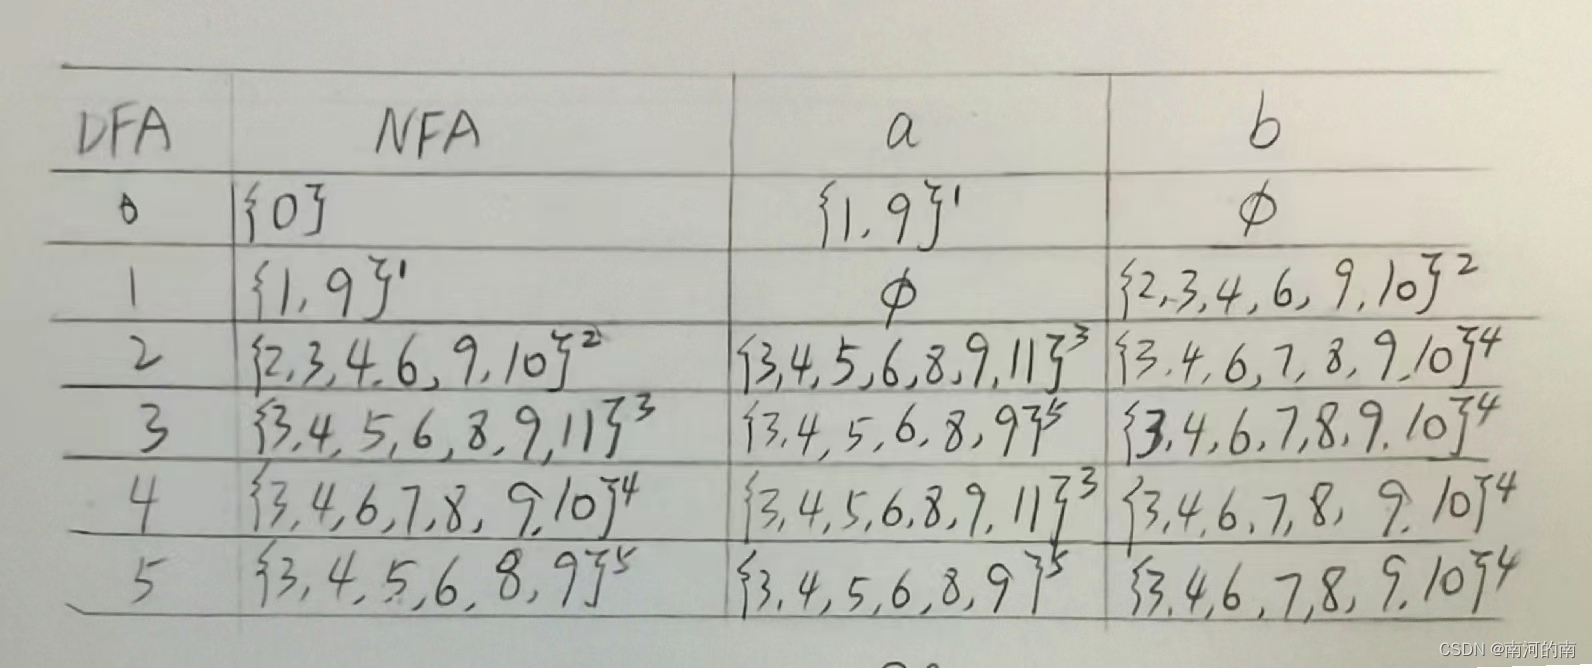 DFA NFA a b
0 {0} {1,9}¹ φ
1 {1,9}¹ φ {2,3,4,6,9,10}²
2 {2,3,4,6,9,10}² {3,4,5,6,8,9,11}³ {3,4,6,7,8,9,10}⁴
3 {3,4,5,6,8,9,11}³ {3,4,5,6,8,9}⁵ {3,4,6,7,8,9,10}⁴
4 {3,4,6,7,8,9,10}⁴ {3,4,5,6,8,9,11}³ {3,4,6,7,8,9,10}⁴
5 {3,4,5,6,8,9}⁵ {3,4,5,6,8,9}⁵ {3,4,6,7,8,9,10}⁴
CSDN @南河的南